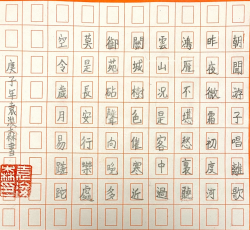 朝聞游子唱離歌
昨夜微霜初度河
鴻雁不堪愁裏聽
雲山況是客中過
關城樹色催寒近
御苑砧聲向晚多
莫是長安行樂處
空令歲月易蹉跎
庚子年袁森書